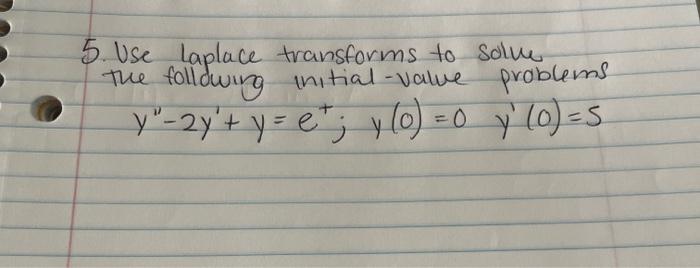 5. Use laplace transforms to solve
the following initial-value problems
y"-2y'+ y = e^t; y(0) = 0 y'(0)=5